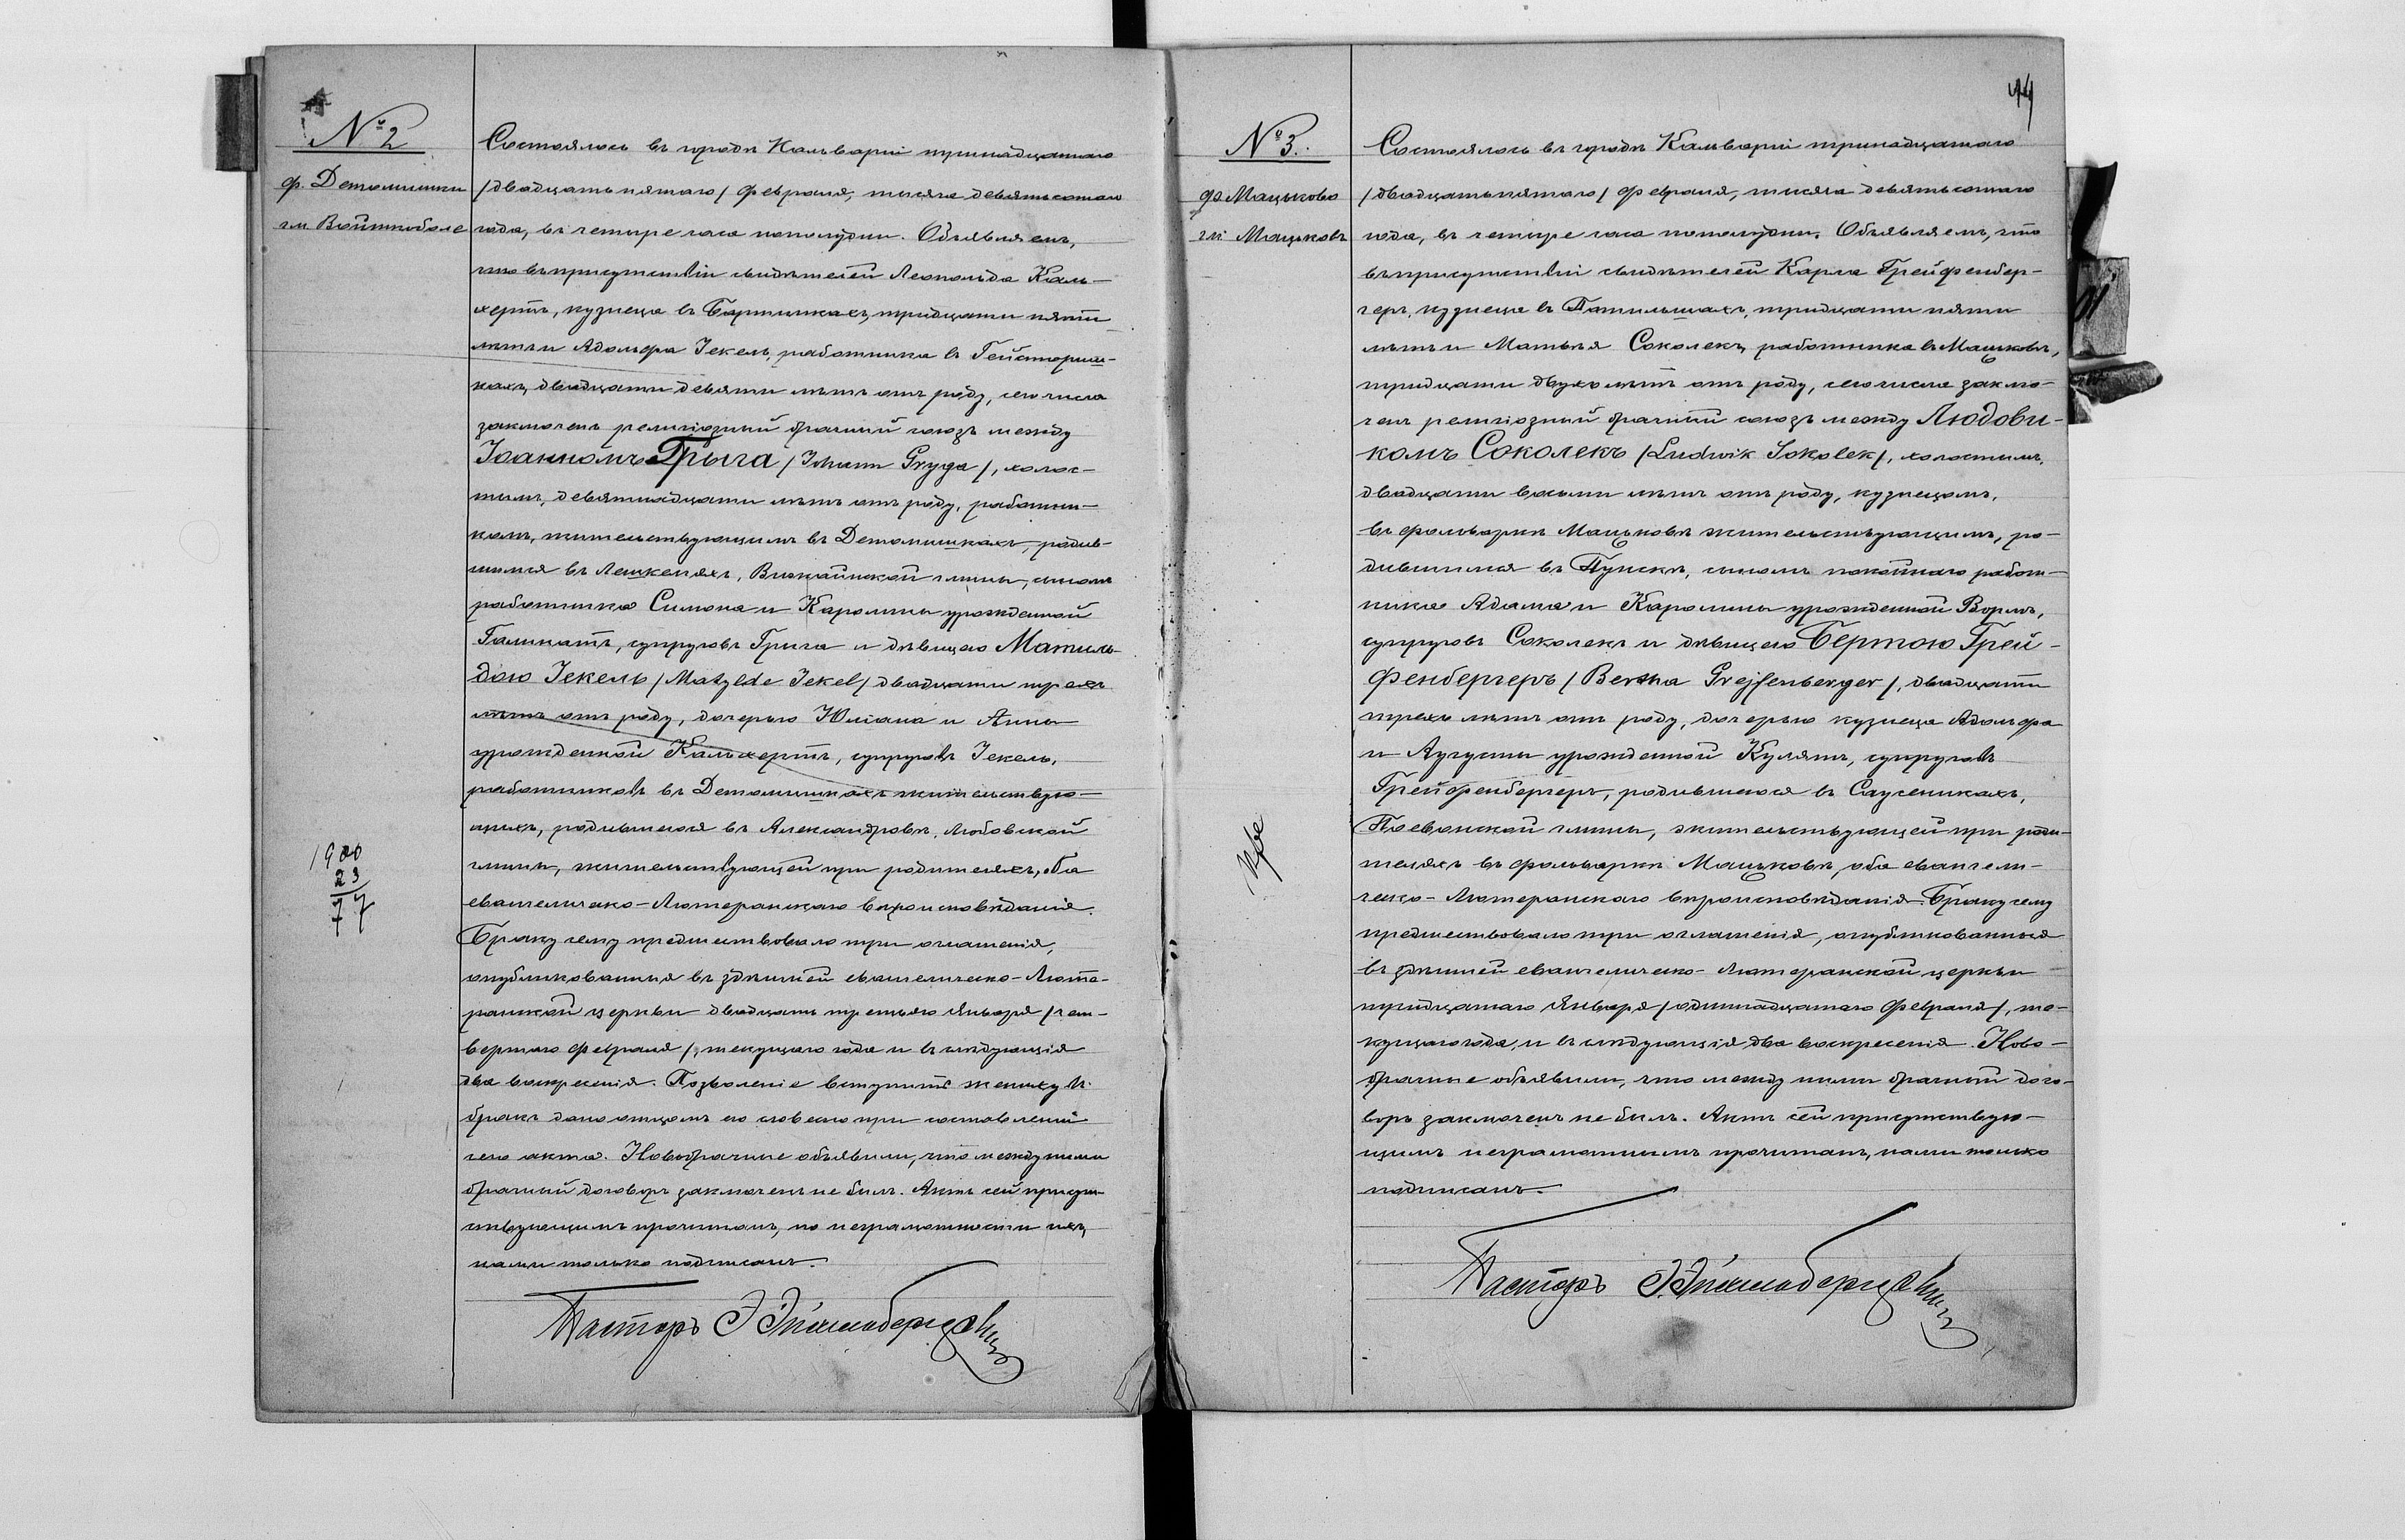 № 2
ф. Детомишки
гм. Войткоболе
Состоялось въ городѣ Кальваріи тринадцатаго
/двадцать пятаго/ февраля, тысяча девятьсотаго
года, въ четыре часа пополудни. Объявляемъ,
что въ присутствіи свидѣтелей Леопольда Каль-
хертъ, кузнеца въ Бартишкахъ, тридцати пяти
лѣтъ и Адольфа Іекель, работника въ Гейсториш-
кахъ, двадцати девяти лѣтъ отъ роду, сего числа
заключенъ религіозный брачный союзъ между
Іоанномъ Грыга /Johann Gryga/, холос-
тымъ, девятнадцати лѣтъ отъ роду, работни-
комъ, жительствующимъ въ Детомишкахъ, родив-
шимся въ Лешкеняхъ, Вижайнской гмины, сыномъ
работника Симона и Каролины урожденной
Галинатъ, супруговъ Грыга и дѣвицею Матиль-
дою Іекель /Matylde Jekel/ двадцати трехъ
лѣтъ отъ роду, дочерью Юліана и Анны
урожденной Кальхертъ, супруговъ Іекель,
работниковъ въ Детомишкахъ жительствую-
щихъ, родившеюся въ Александровѣ, Любовской
гмины, жительствующей при родителяхъ, оба
евангелическо-Лютеранскаго вѣроисповѣданія.
Браку сему предшествовало три оглашенія,
опубликованныя въ здѣшней евангелическо-Люте-
ранской церкви двадцать третьяго Января /чет-
вертаго февраля/, текущаго года и въ слѣдующія
два воскресенія. Позволеніе вступить жениху въ
бракъ дано отцомъ его словесно при составленіи
сего акта. Новобрачные объявили, что между ними
брачный договоръ заключенъ не былъ. Актъ сей присут-
ствующимъ прочитанъ, по неграмотности ихъ,
нами только подписанъ.
Пасторъ
1900
23
77
44
№ 3.
ф. Мацьково
гм. Мацьковъ
Состоялось въ городѣ Кальваріи тринадцатаго
/двадцать пятаго/ февраля, тысяча девятьсотаго
года, въ четыре часа пополудни. Объявляемъ, что
въ присутствіи свидѣтелей Карла Грейфенбер-
геръ, кузнеца въ Патильшахъ, тридцати пяти
лѣтъ и Матвѣя Соколекъ, работника въ Мацьковѣ,
тридцати двухъ лѣтъ отъ роду, сего числа заклю-
ченъ религіозный брачный союзъ между Людови-
комъ Соколекъ /Ludwik Sokolek/, холостымъ,
двадцати восьми лѣтъ отъ роду, кузнецомъ,
въ фольваркѣ Мацьковѣ жительствующимъ, ро-
дившимся въ Пунскѣ, сыномъ покойнаго работ-
ника Адама и Каролины урожденной Вормъ,
супруговъ Соколекъ и дѣвицею Бертою Грей-
фенбергеръ /Bertha Grejfenberger/, двадцати
трехъ лѣтъ отъ роду, дочерью кузнеца Адольфа
и Аугусты урожденной Кулятъ, супруговъ
Грейфенбергеръ, родившеюся въ Саусеникахъ,
Поевонской гмины, жительствующей при роди-
теляхъ въ фольваркѣ Мацьковѣ, оба евангели-
ческо-Лютеранскаго вѣроисповѣданія. Браку сему
предшествовало три оглашенія, опубликованныя
въ здѣшней евангелическо-Лютеранской церкви
тридцатаго Января /одиннадцатаго февраля/, те-
кущаго года, и въ слѣдующія два воскресенія. Ново-
брачные объявили, что между ними брачный дого-
воръ заключенъ не былъ. Актъ сей присутствую-
щимъ неграмотнымъ прочитанъ, нами только
подписанъ.
Пасторъ